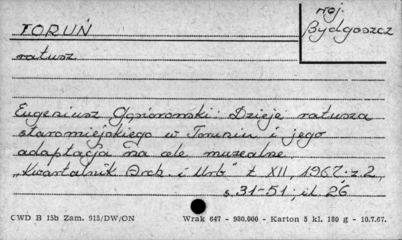 TORUŃ
woj. Bydgoszcz
ratusz
Eugeniusz Gąsiorowski: Dzieje ratusza
staromiejskiego w Toruniu i jego
adaptacja na cele muzealne
„Kwartalnik Arch. i Urb" t XII, 1967. z. 2,
s. 31-51; il. 26
CWD B 15b Zam. 915/DW/ON Wrak 647 - 930,000 - Karton 5 kl. 180 g - 10.7.67.